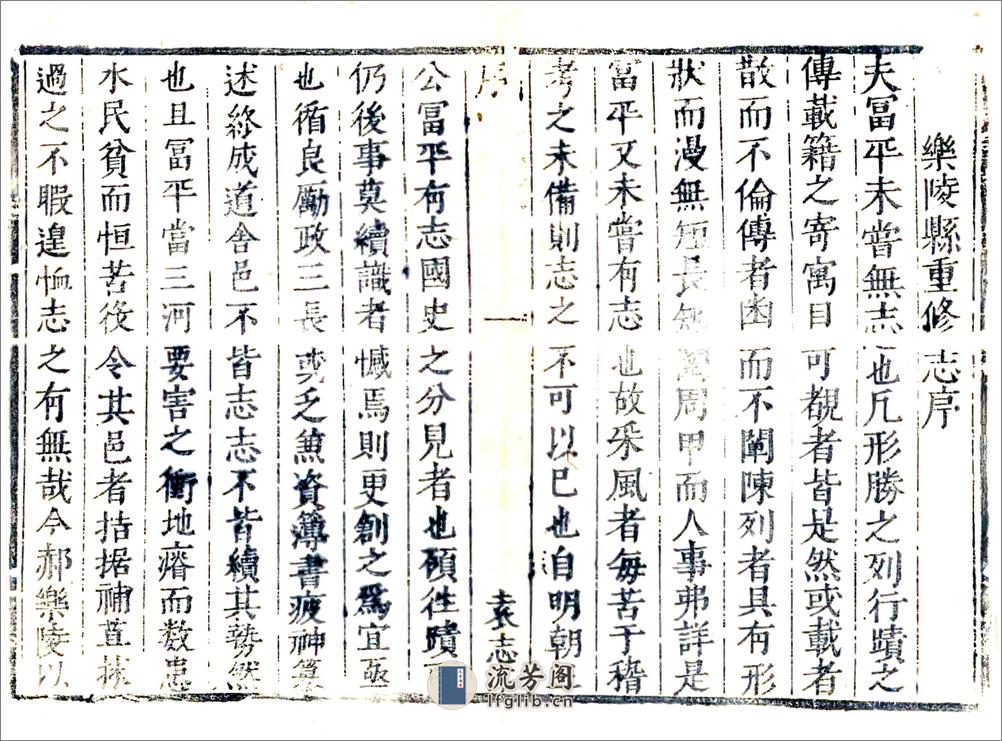 樂陵縣重修志序
夫冨平未甞無志也凡形勝之列行蹟之
傳載籍之寄寓目可覩者皆是然或載者
散而不倫傳者而不闡陳列者具有形
狀而漫無短長無周甲而人事弗詳是
冨平又未甞有志也故采風者每苦于稽
考之未備則志之不可以已也自明朝
序 一 袁志
公冨平有志國史之分見者也碩徃蹟
仍後事莫續識者憾焉則更創之爲宜亟
也循良勵政三長或乏兼資簿書疲神
述終成道舍邑不皆志志不皆續其勢然
也且冨平當三河要害之衝地瘠而数患
水民貧而恒苦役令其邑者拮据補苴捄
過之不暇遑恤志之有無哉今郝樂陵以
流芳阁
lfglib.cn